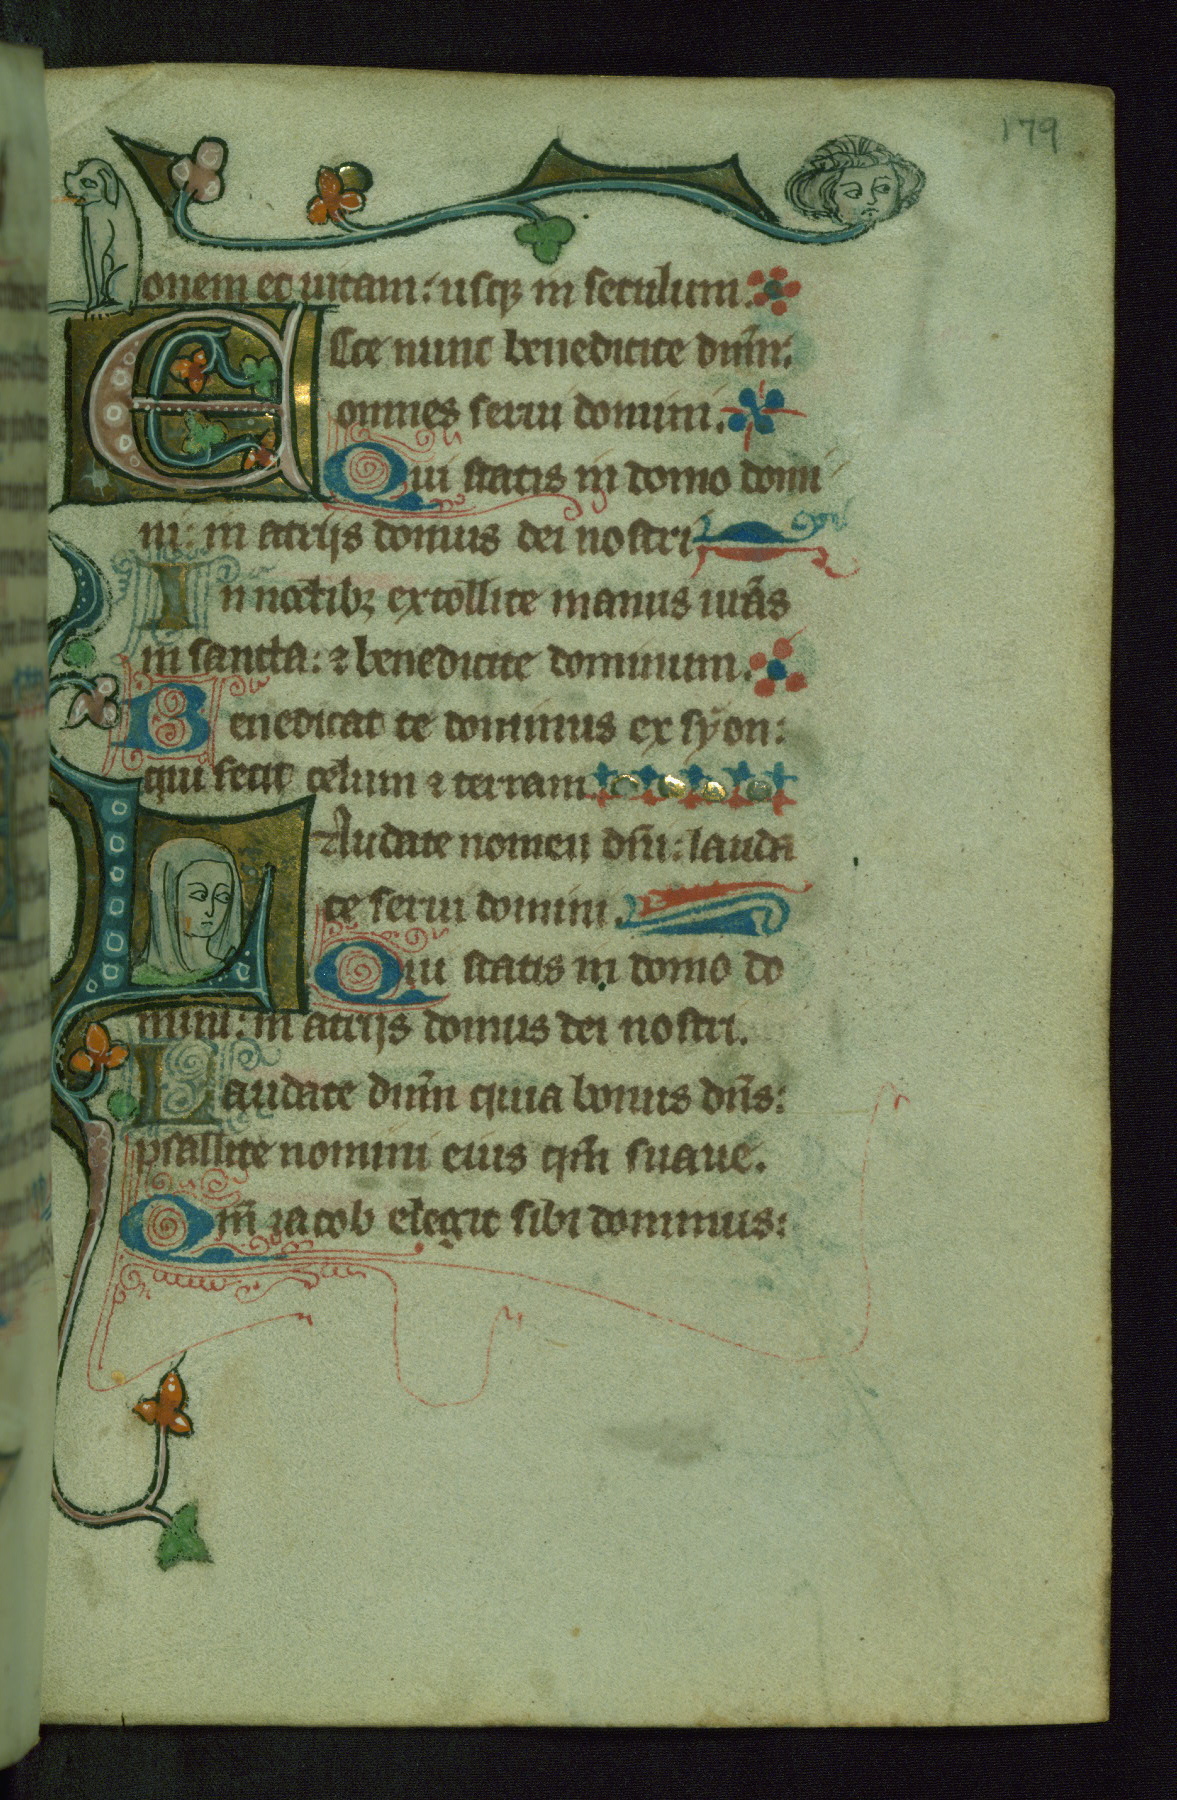 179
onem et uitam: usq; in seculum.
ECce nunc benedicite dnm̄:
omnes serui domini.
Qui statis in domo domi
ni: in atrijs domus dei nostri
In noctib; extollite manus ur̄as
in sancta: ⁊ benedicite dominum.
Benedicat te dominus ex syon:
qui fecit celum ⁊ terram
LAudate nomen dn̄i: lauda
te serui domini.
Qui statis in domo do
mini: in atrijs domus dei nostri.
Laudate dnm̄ quia bonus dn̄s:
psallite nomini eius qm̄ suaue.
Qm̄ iacob elegit sibi dominus: